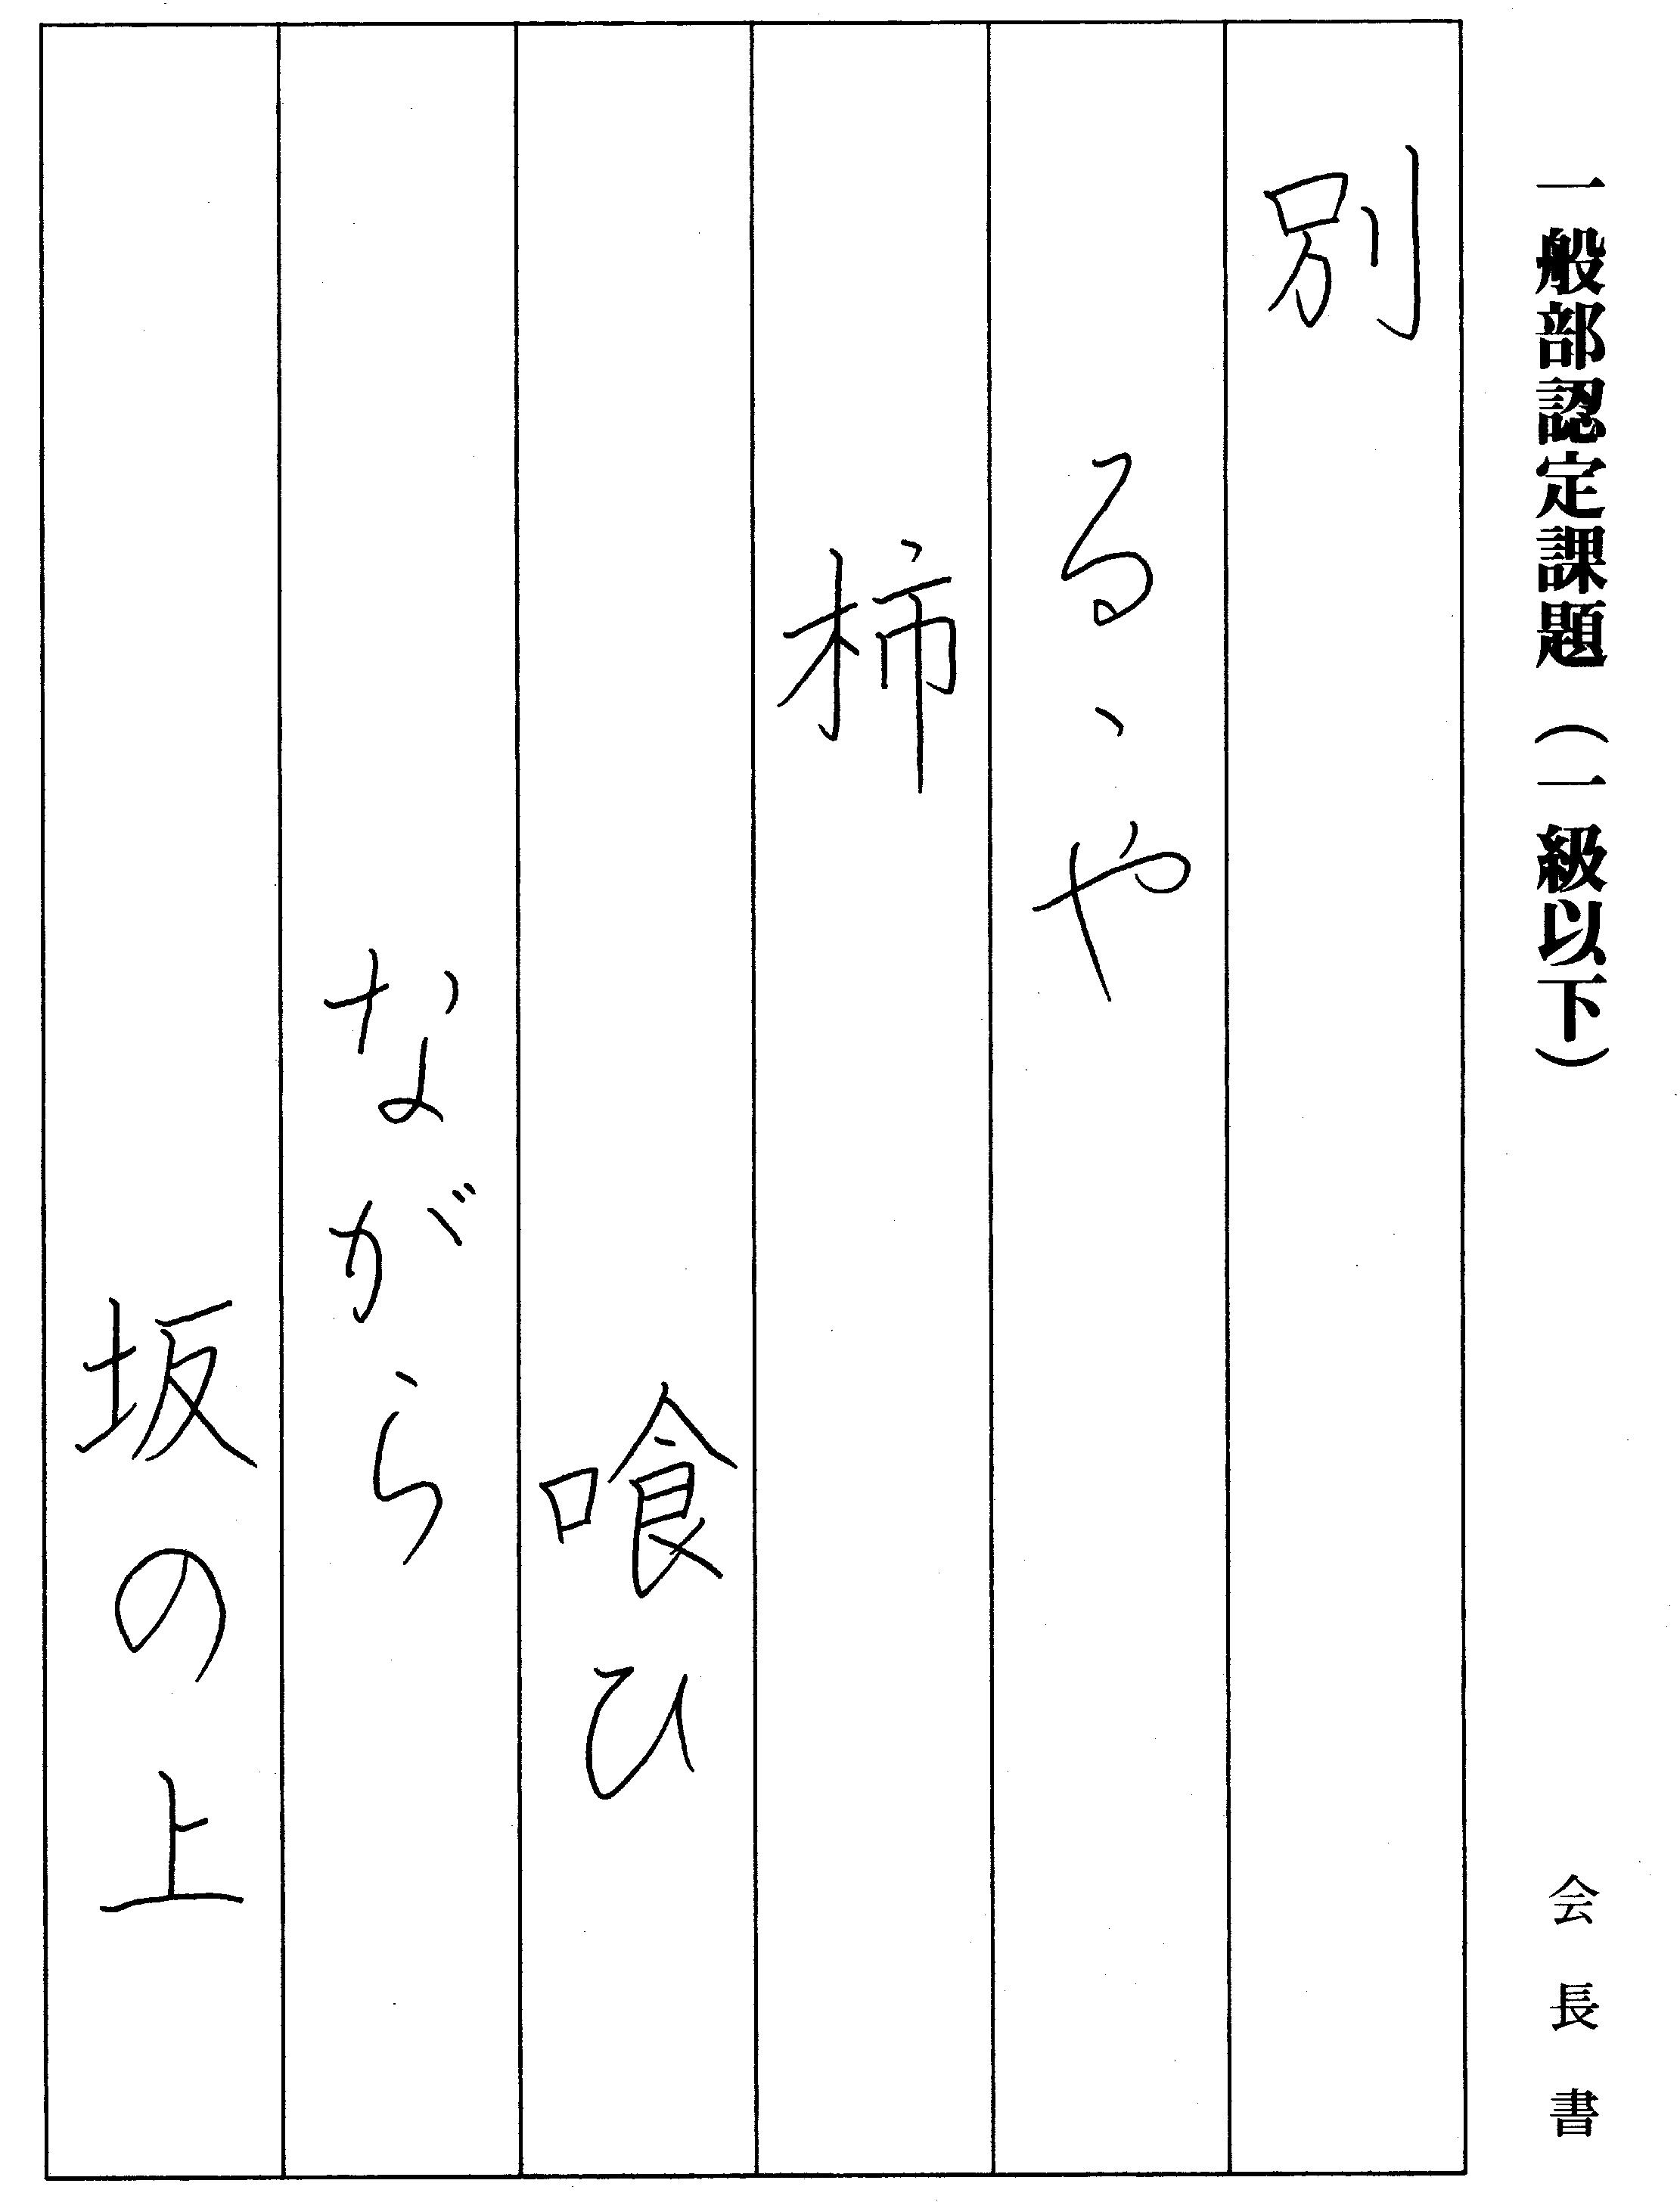 一般部認定課題（一級以下）　会長書
別
るゝや
柿
喰ひ
ながら
坂の上